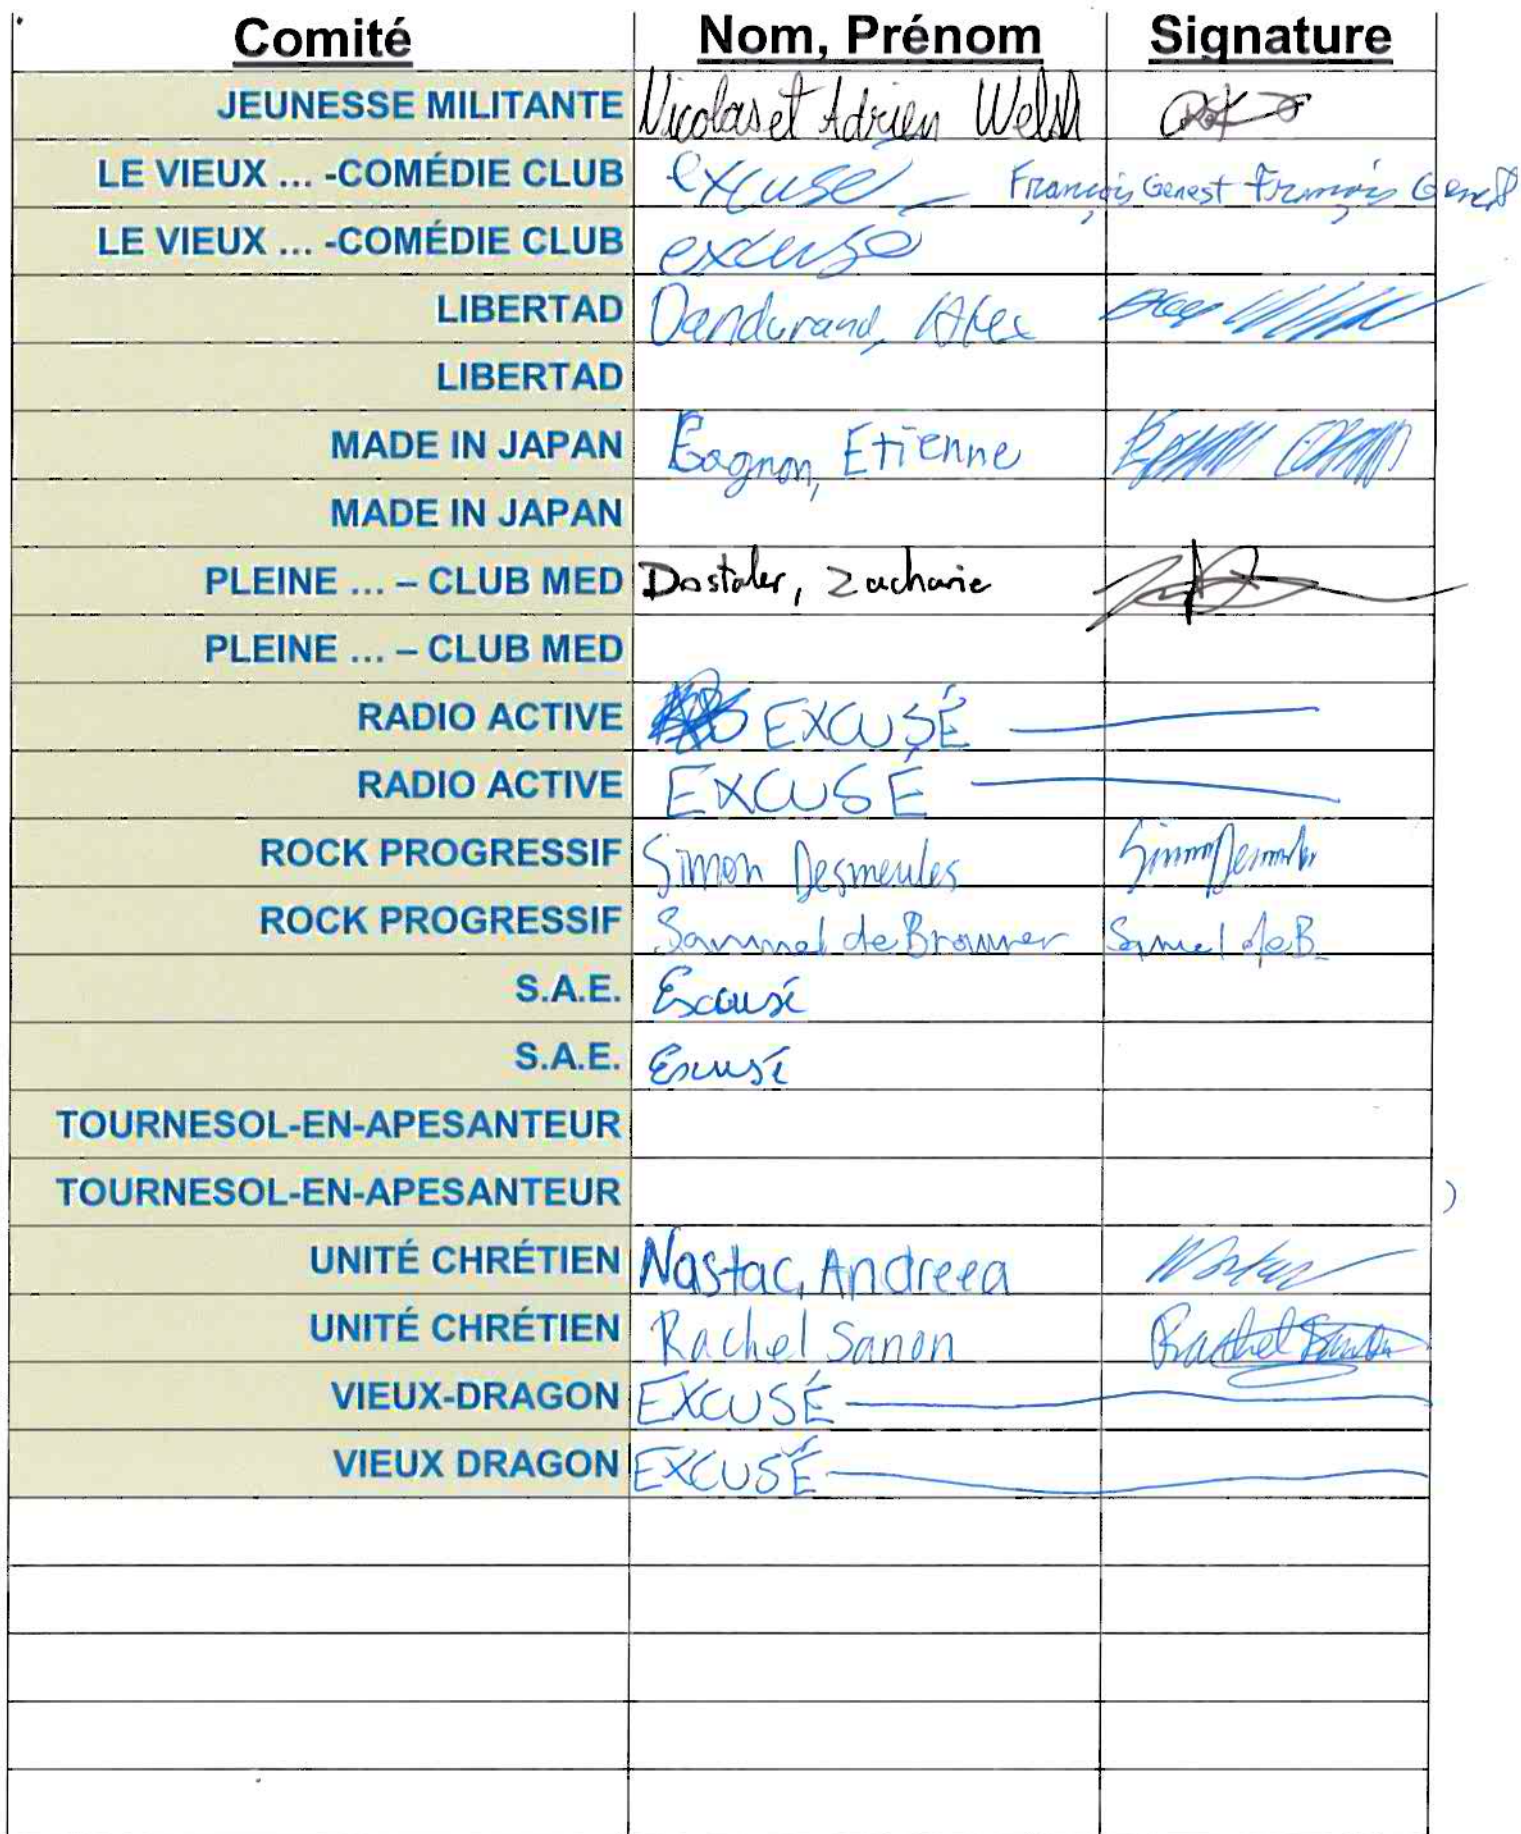 Comité Nom, Prénom Signature
JEUNESSE MILITANTE Nicolas et Adrien Welsh
LE VIEUX ... -COMÉDIE CLUB excuse François Genest François Genest
LE VIEUX ... -COMÉDIE CLUB excuse
LIBERTAD Dandurand, Alex
LIBERTAD
MADE IN JAPAN Gagnon, Etienne
MADE IN JAPAN
PLEINE ... – CLUB MED Dostaler, Zacharie
PLEINE ... – CLUB MED
RADIO ACTIVE EXCUSÉ
RADIO ACTIVE EXCUSÉ
ROCK PROGRESSIF Simon Desmeules Simon Desmeules
ROCK PROGRESSIF Samuel de Brouwer Samuel de B.
S.A.E. Excusé
S.A.E. Excusé
TOURNESOL-EN-APESANTEUR
TOURNESOL-EN-APESANTEUR
UNITÉ CHRÉTIEN Nastac, Andreea Nastac
UNITÉ CHRÉTIEN Rachel Sanon Rachel Sanon
VIEUX-DRAGON EXCUSÉ
VIEUX DRAGON EXCUSÉ